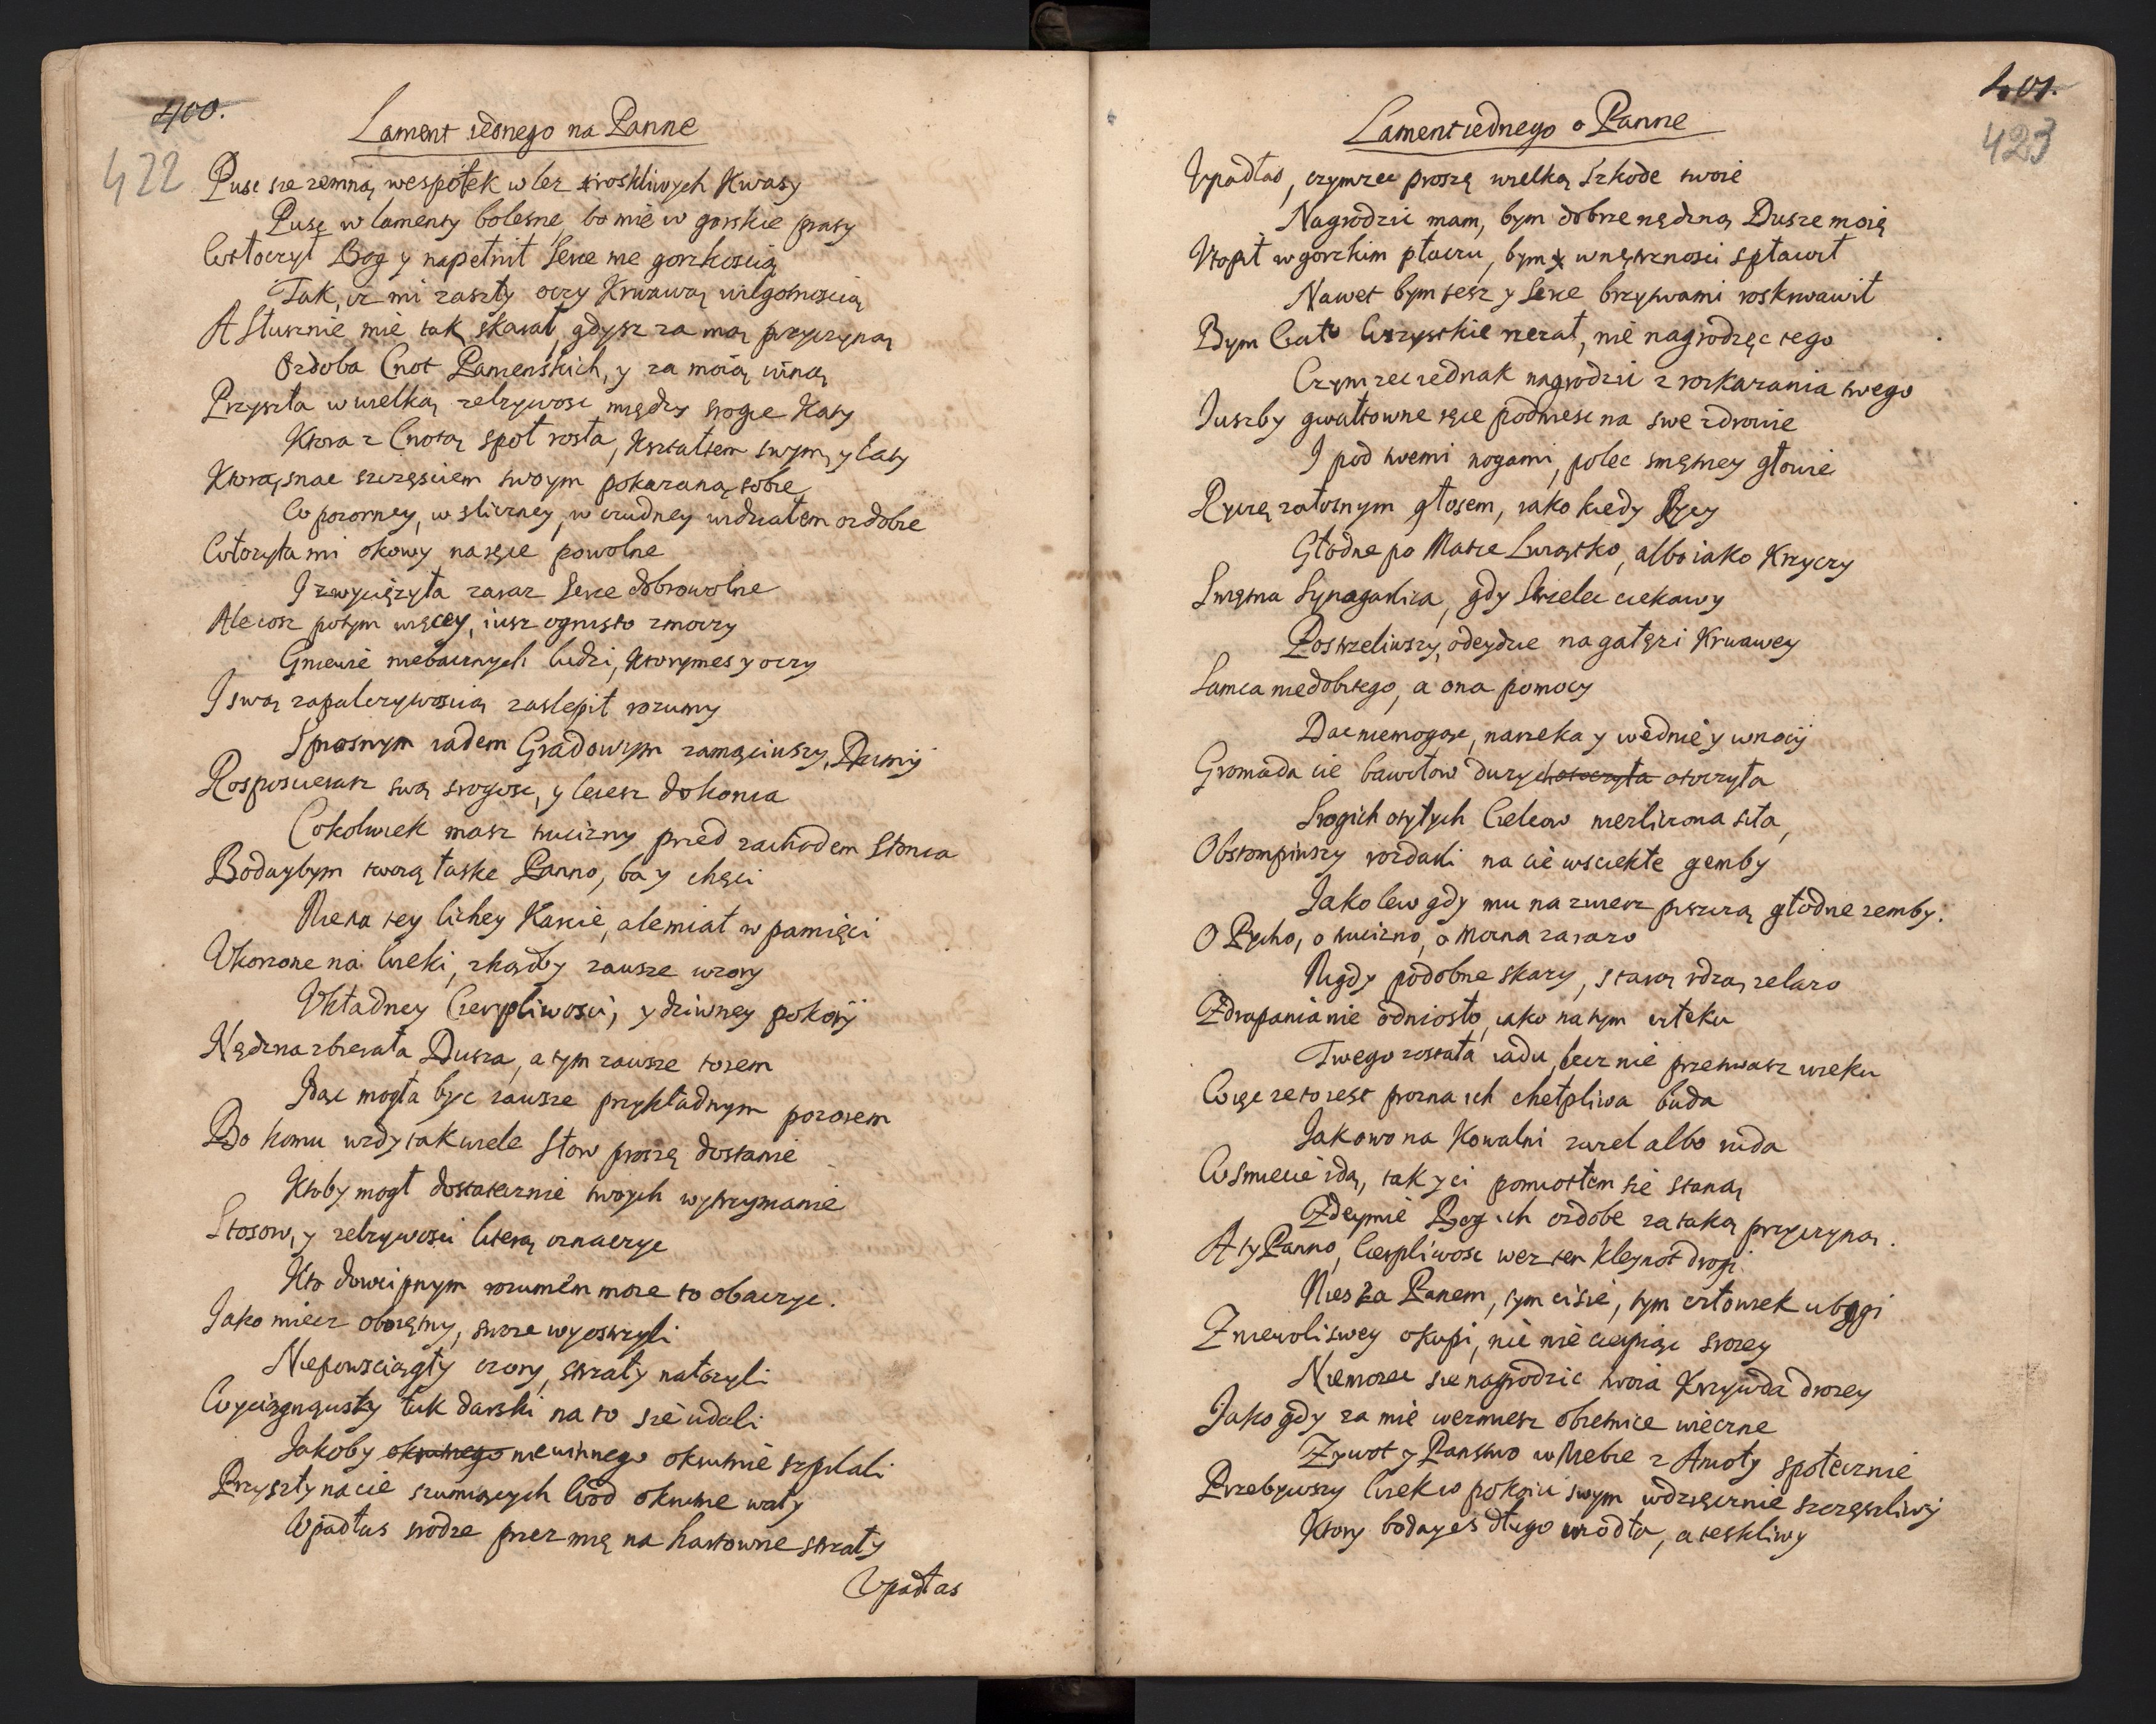 400.
422
Lament iednego na Panne
Pusc sie zemną wespołek w lez troskliwych Kwasy
Pusc w lamenty bolesne, bo mie w gorskie prasy
Wtłoczył Bog y napełnił Serce me gorzkoscią
Tak, iz mi zaszły oczy Krwawą wilgotnoscią
A Słusznie mie tak skarał, gdysz za mą przyczyną
Ozdoba Cnot Panienskich, y za moią winą
Przyszła w wielką zelzywosc między srogie Katy
Ktora z Cnotą społ rosła, Kształtem swym, y Laty
Ktorą snac szczęsciem swoym pokazaną sobie
W pozorney, w sliczney, w cudney widziałem ozdobie
Włozyła mi okowy na ręce powolne
I zwyciężyła zaraz Serce dobrowolne
Ale cosz potym więcey, iusz ognisto zmoczy
Gniewie niebacznych ludzi, Ktorymes y oczy
I swą zapalczywoscią zaslepił rozumy
Sprosnym iadem Gradowym zamąciwszy, Dumy
Rosposcierasz swą srogosc, y lecisz do konca
Cokolwiek masz trucizny przed zachodem Słonca
Bodaybym twoią łaske Panno, ba y chęci
Nie na tey lichey Karcie, ale miał w pamięci
Vkorzone na wieki, zkądby zawsze wzory
Vkładney Cierpliwosci, y dziwney pokory
Nędzna zbierała Dusza, a tym zawsze torem
Idąc mogła byc zawsze przykładnym pozorem
Bo komu wzdy tak wiele Słow proszę dostanie
Ktoby mogł dostatecznie twoych wytrzymanie
Stosow, y zelzywosci literą oznaczyc
Kto dowcipnym rozumem moze to obaczyc.
Jako miecz obosięczny, swoie wyostrzyli
Niepowsciągły ozory, strzały natozyli
Wyciągnąwszy łuk darski na to sie udali
Jakoby okrutnego niewinnego okrutnie szpilali
Przyszły na cie szumiących Wod okrutne wały
Wpadłas srodze przez mię na hartowne strzały
Vpadłas
401.
423
Lament iednego o Panne
Vpadłas, czymzec proszę wielką Szkode twoie
Nagrodzic mam, bym dobrze nędzną Dusze moię
Vtopił w gorzkim płaczu, bym y wnętrznosci spławił
Nawet bym tesz y Serce brzytwami roskrwawił
Bym Ciało Wszystkie zterał, nie nagrodzęc tego
Czymzec iednak nagrodzic z roskazania twego
Iuszby gwałtowne ręce podniesc na swe zdrowie
I pod twemi nogami, polec smętney głowie
Ryczę załosnym głosem, iako kiedy Ryczy
Głodne po Matce Lwiątko, albo iako Krzyczy
Smętna Synogarlica, gdy Strzelec ciekawy
Postrzeliwszy, odeydzie na gałęzi Krwawey
Samca niedobitego, a ona pomocy
Dac niemogąc, narzeka y wednie y wnocy
Gromada cie bawołow duzych otoczyła otoczyła
Srogich otyłych Cielcow niezliczona siła,
Obstompiwszy rozdarli na cie wsciekłe gemby
Jako lew gdy mu na zwierz puszczą głodne zemby.
O Pycho, o trucizno, o Mocna zarazo
Nigdy podobne skazy, starą rdzą zelazo
Zdrapania nie odniosło, iako na tym człeku
Twego została iadu, lecz nie przetrwasz wieku
Wiec ze to iest prozna ich chełpliwa buda
Jakowo na Kowalni zuzel albo ruda
W smiecie idą, tak y ci pomiotłem sie staną
Zdeymie Bog ich ozdobe za taką przyczyną.
A ty Panno, Cierpliwosc wez ten Kleynot drogi.
Niesza Panem, tym cisie, tym człowiek ubogi
Z niewoli swey okupi, nic nie cierpiąc srozey
Niemozec sie nagrodzic twoia Krzywda drozey
Jako gdy za nie wezmiesz obietnice wieczne
Zywot y Panstwo w Niebie z Anioły społecznie
Przebywszy wiek w pokoiu swym wdzięcznie szczęsliwy
Ktory bodayes długo wiodła, a teskliwy